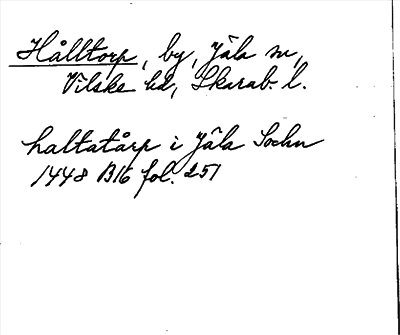 Hålltorp, by, Jäla sn,
Vilske hd, Skarab. l.
haltatårp i Jäla Sochn
1448 B16 fol. 251